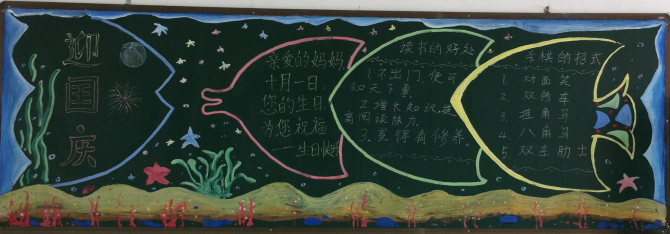 迎
国
庆
亲爱的妈妈
十月一日
您的生日
为您祝福
——生日快乐
读书的好处
1.不出门,便可
知天下事.
2.增长知识,提
高阅读能力.
3.变得有修养.
杀棋的招式
1. 对面笑
2. 双错车
3. 挂角马
4. 八角马
5. 双车胁士